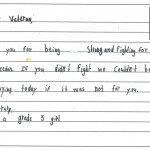 Veteran,
you for being strong and fighting for
freedom If you didn't fight we couldn't be
today if it was not for you.
a grade 5 girl